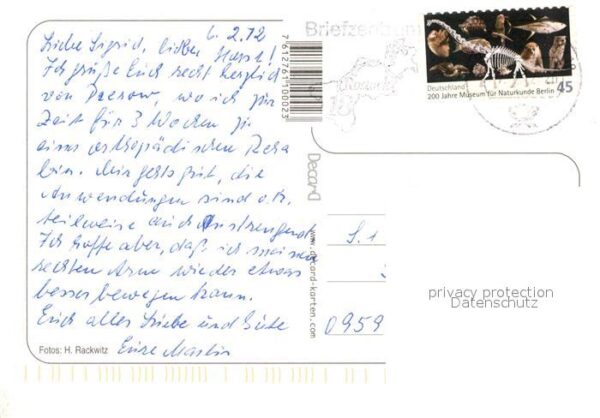 6.2.12
Liebe Sigrid, lieber Horst!
Ich grüße Euch recht herzlich
von Prerow, wo ich zur
Zeit für 3 Wochen zu
einer orthopädischen Reha
bin. Mir geht's gut, die
Anwendungen sind o.k.
teilweise auch anstrengend.
Ich hoffe aber, daß ich meinen
rechten Arm wieder etwas
besser bewegen kann.
Euch alles Liebe und Gute
Eure
Fotos: H. Rackwitz
7612761100023
Decard
www.decard-karten.com
Briefzentrum
18
Deutschland
200 Jahre Museum für Naturkunde Berlin
45
S.
0959
privacy protection
Datenschutz